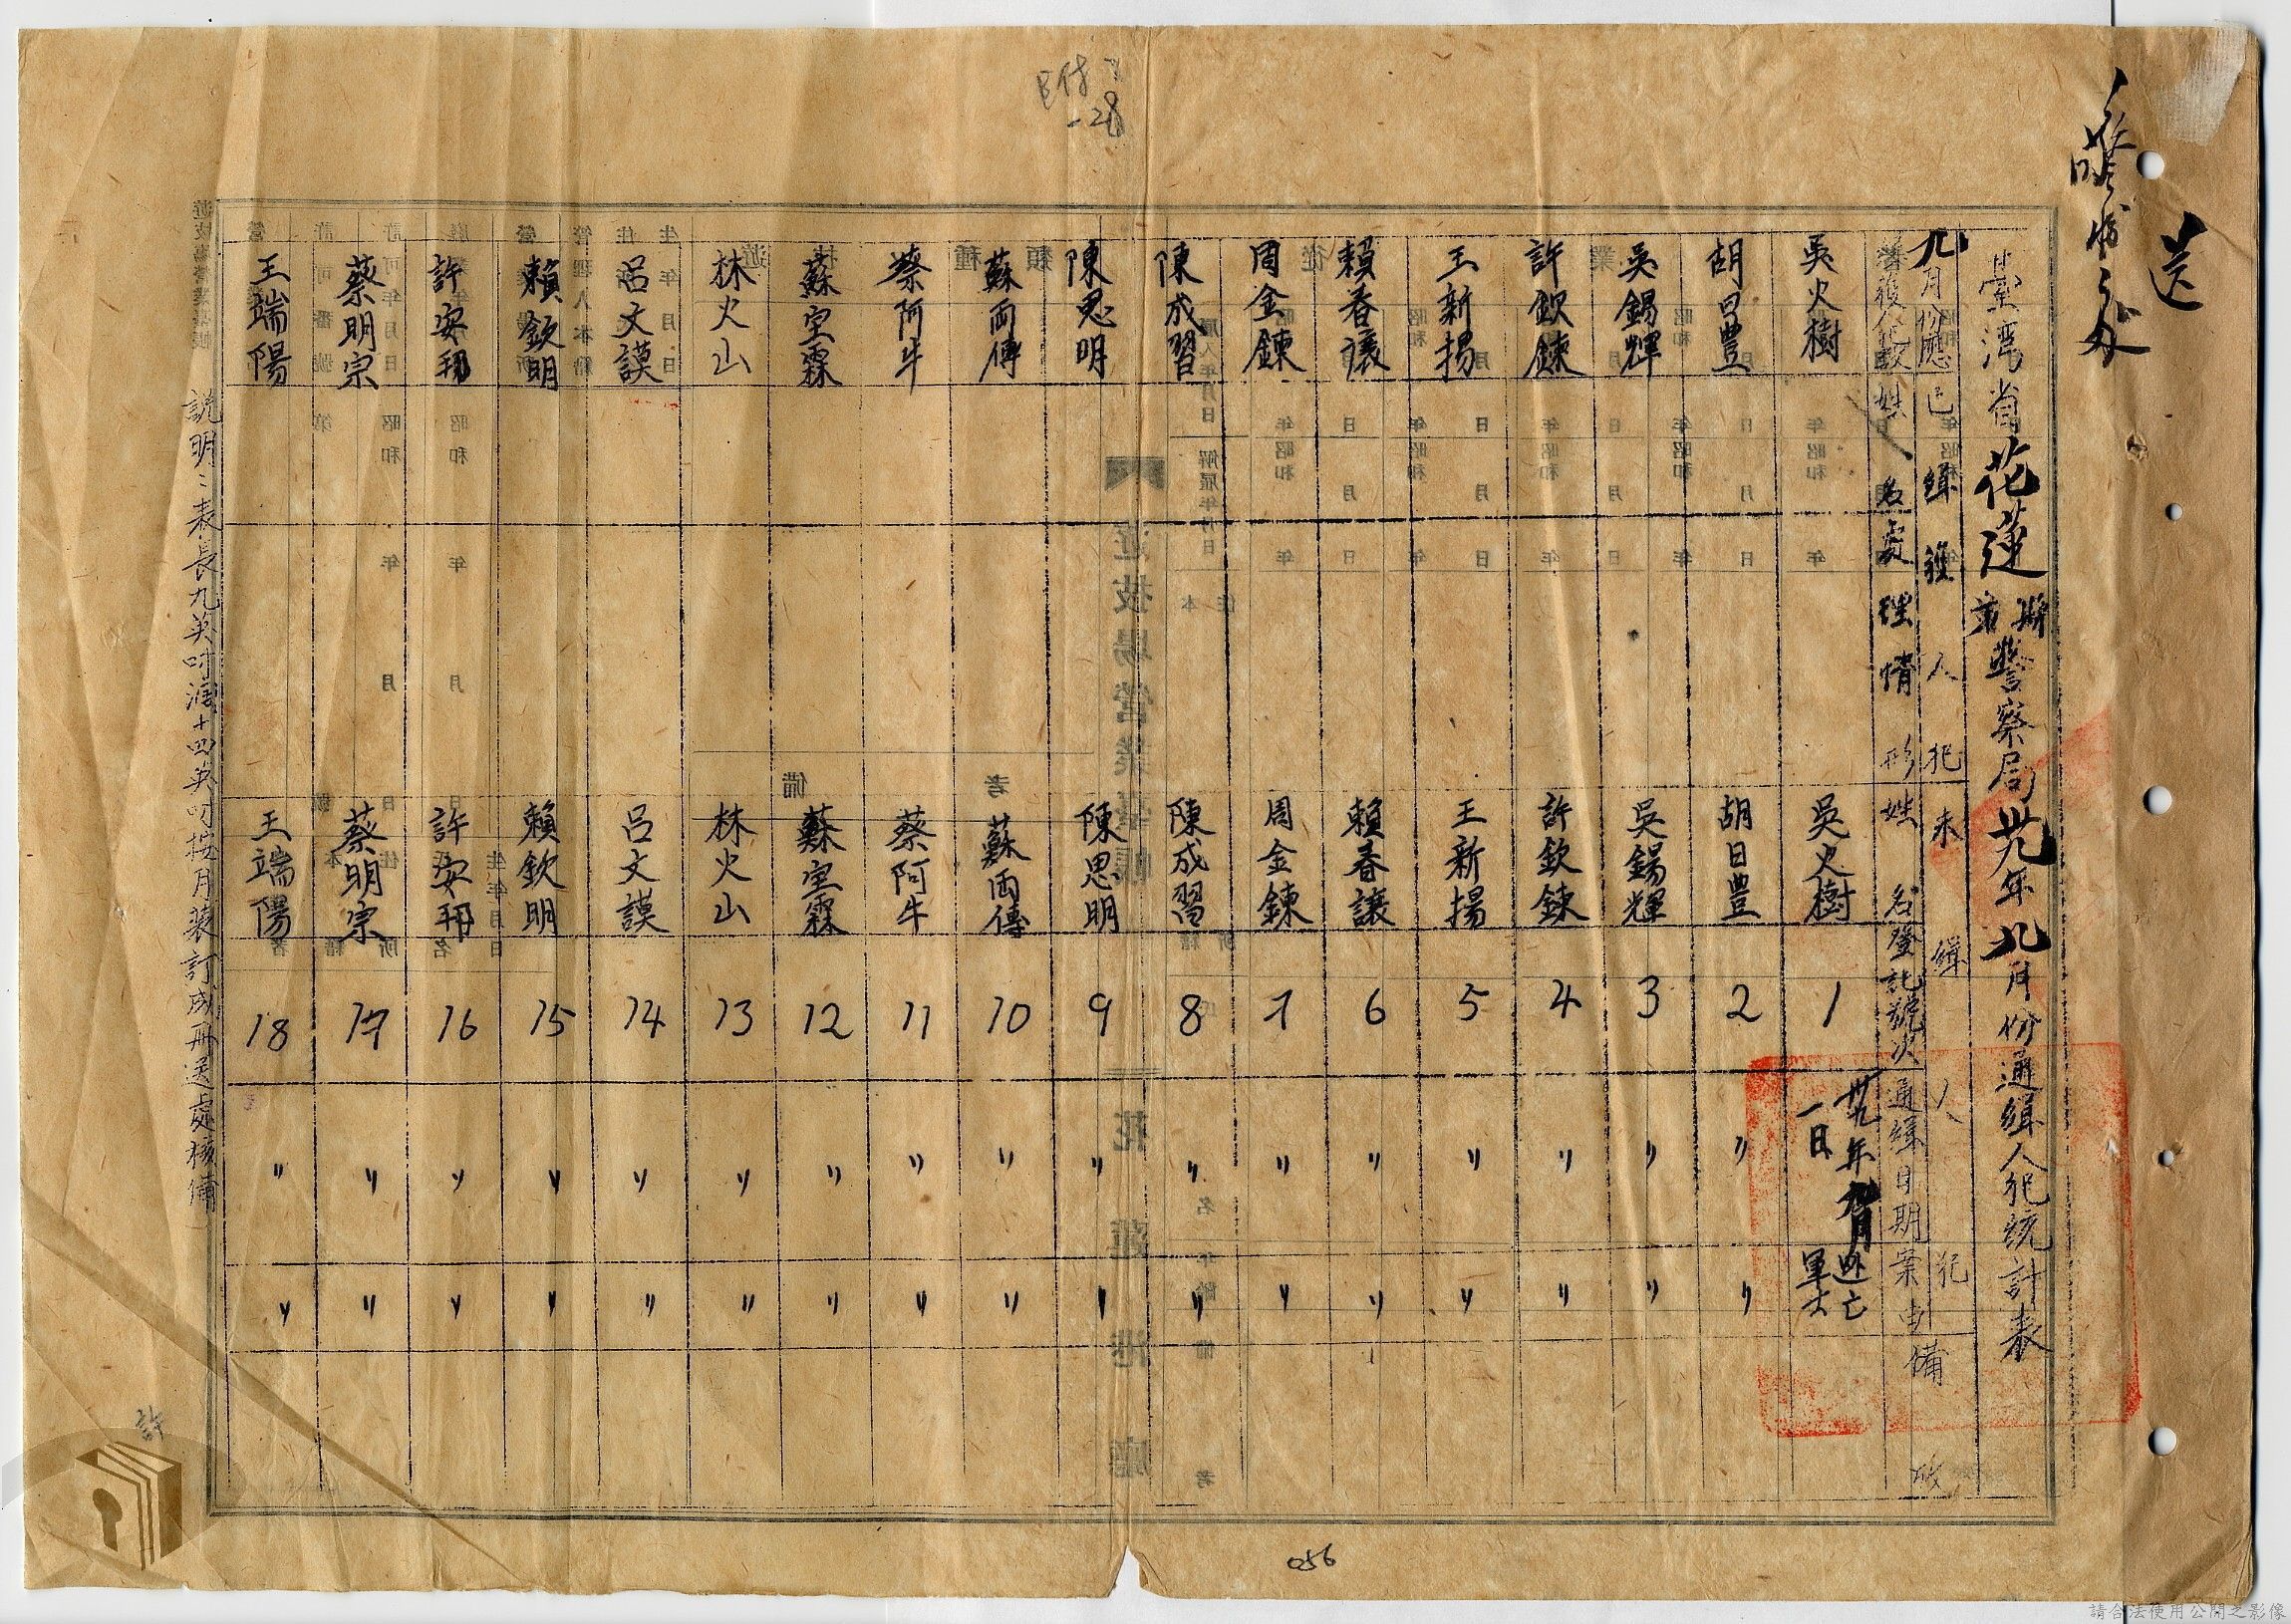 送
臺灣省花蓮縣警察局卅九年九月份通緝人犯統計表
九月份應
已緝獲人犯
未緝人犯
姓名
處理情形
姓名
登記號次
通緝日期
案由
備攷
吳火樹
吳火樹
1
卅九年九月一日
逃亡軍士
胡日豐
胡日豐
2
〃
〃
吳錫輝
吳錫輝
3
〃
〃
許欽鍊
許欽鍊
4
〃
〃
王新揚
王新揚
5
〃
〃
賴春讓
賴春讓
6
〃
〃
周金鍊
周金鍊
7
〃
〃
陳成習
陳成習
8
〃
〃
陳思明
陳思明
9
〃
〃
蘇兩傳
蘇兩傳
10
〃
〃
蔡阿牛
蔡阿牛
11
〃
〃
蘇室霖
蘇室霖
12
〃
〃
林火山
林火山
13
〃
〃
呂文謨
呂文謨
14
〃
〃
賴欽明
賴欽明
15
〃
〃
許安邦
許安邦
16
〃
〃
蔡明宗
蔡明宗
17
〃
〃
王端陽
王端陽
18
〃
〃
說明：表長九英吋濶十四英吋按月裝訂成冊送處核備
遊技場營業臺帳
花蓮港廳
許
056
請合法使用公開之影像